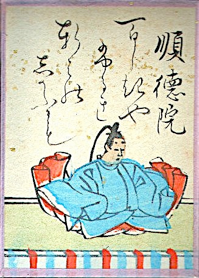 順徳院
百しきや
ふるき
軒はの
しのふにも